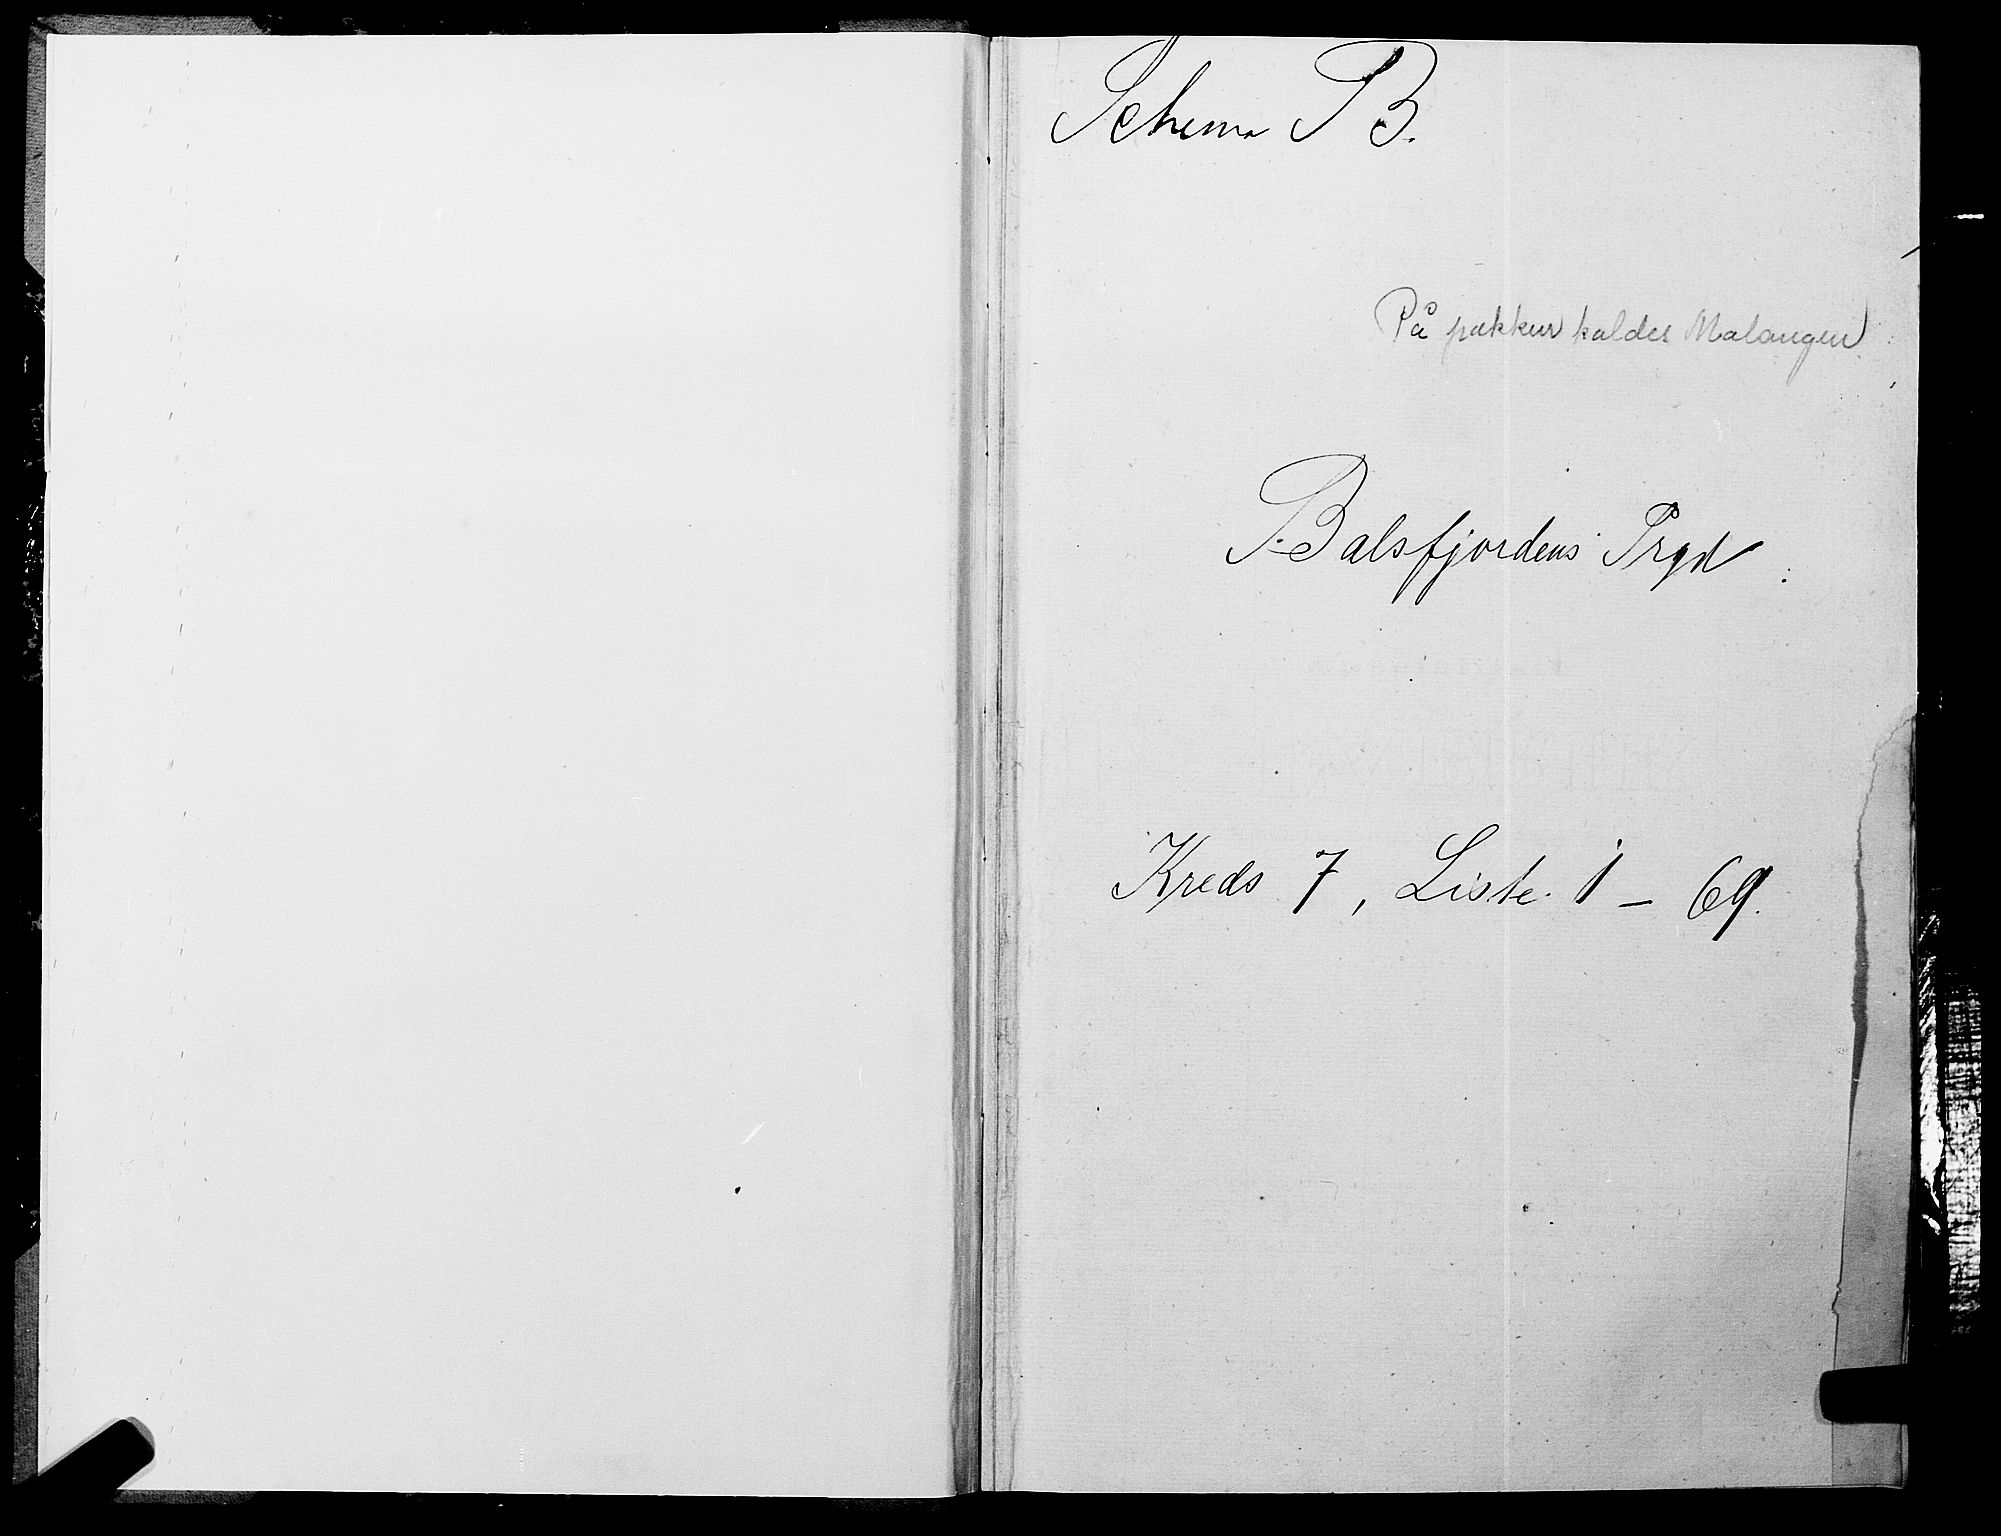 Schema B.
På pakken kaldes Malangen
Balsfjordens Prgd
Kreds 7, Liste 1 – 69.